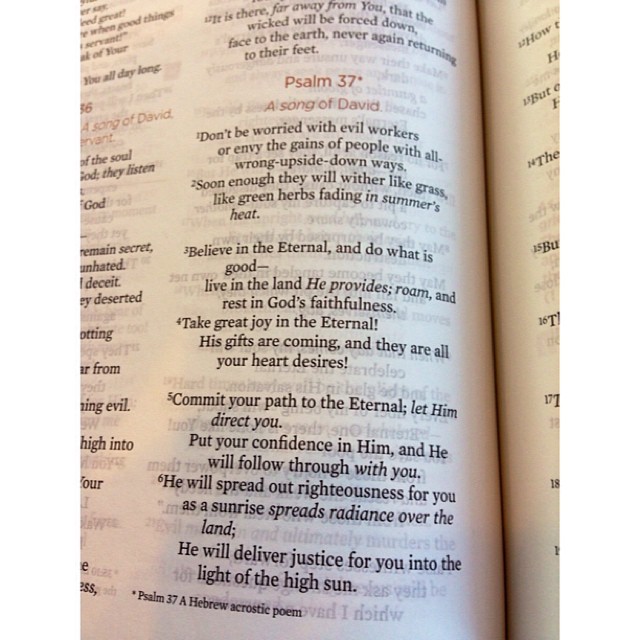 er say.
eed great!
e when good things
servant!"
ak of Your
You all day long.
36
A song of David,
ervant.
of the soul
God; they listen
God
remain secret,
unhated.
deceit.
ey deserted
otting
ar from
ing evil.
high into
Your
e
ess,
12It is there, far away from You, that the
wicked will be forced down,
face to the earth, never again returning
to their feet.
Psalm 37*
A song of David.
1Don't be worried with evil workers
or envy the gains of people with all-
wrong-upside-down ways.
2Soon enough they will wither like grass,
like green herbs fading in summer's
heat.
3Believe in the Eternal, and do what is
good—
live in the land He provides; roam, and
rest in God's faithfulness.
4Take great joy in the Eternal!
His gifts are coming, and they are all
your heart desires!
5Commit your path to the Eternal; let Him
direct you.
Put your confidence in Him, and He
will follow through with you.
6He will spread out righteousness for you
as a sunrise spreads radiance over the
land;
He will deliver justice for you into the
light of the high sun.
*Psalm 37 A Hebrew acrostic poem
12How t
H
13But o
14The
15Bu
16T
17T
18